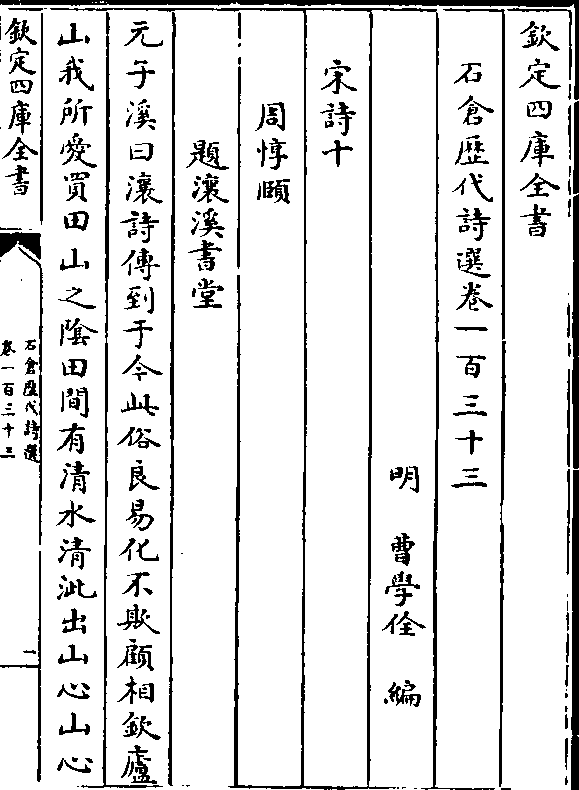 欽定四庫全書
石倉歷代詩選卷一百三十三
明 曹學佺 編
宋詩十
周惇頤
題瀼溪書堂
元子溪曰瀼詩傳到于今此俗良易化不欺顧相欽廬
山我所愛買田山之陰田間有清水清泚出山心山心
欽定四庫全書
石倉歷代詩選
卷一百三十三
一